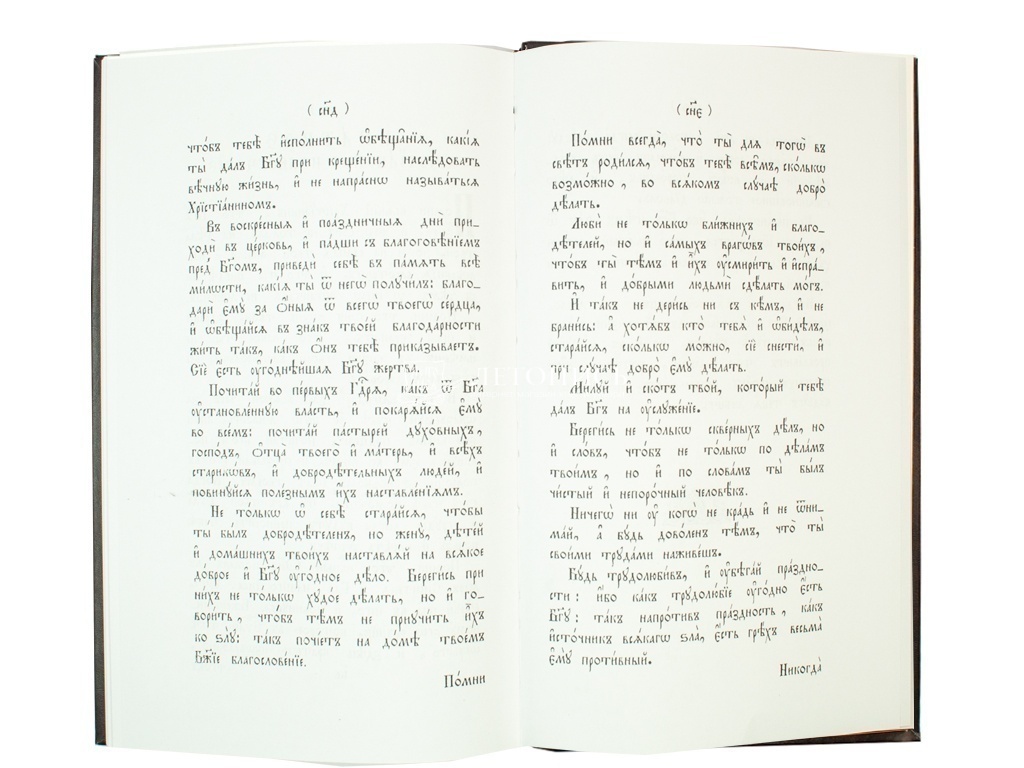 ( сн҃д )
что́бъ тебѣ̀ и҆спо́лнить ѡ҆бѣща̑нїѧ, какі́ѧ
ты̀ да́лъ Бг҃ꙋ при креще́нїи, наслѣ́довать
вѣ́чнꙋю жи́знь, и҆ не напра́снѡ называ́тьсѧ
Хрїстїа́ниномъ.
Въ воскре́сныѧ и҆ пра́здничныѧ дни̑ при-
ходѝ въ це́рковь, и҆ па́дши съ благоговѣ́нїемъ
пред̾ Бг҃омъ, приведѝ себѣ̀ въ па́мѧть всѣ̀
ми́лости, какі́ѧ ты̀ ѿ негѡ̀ полꙋчи́лъ: благо-
дарѝ є҆мꙋ̀ за ѻ҆́ныѧ ѿ всегѡ̀ твоегѡ̀ се́рдца,
и҆ ѡ҆бѣща́йсѧ въ зна́къ твое́й благода́рности
жи́ть та́къ, ка́къ ѻ҆́нъ тебѣ̀ прика́зываетъ.
Сїѐ є҆́сть ᲂу҆го́днѣйшаѧ Бг҃ꙋ же́ртва.
Почита́й во пе́рвыхъ Гдⷭ҇рѧ, ка́къ ѿ Бг҃а
ᲂу҆стано́вленнꙋю вла́сть, и҆ покарѧ́йсѧ є҆мꙋ̀
во все́мъ: почита́й па́стырей дꙋхо́вныхъ,
госпо́дъ, ѻ҆тца̀ твоего̀ и҆ ма́терь, и҆ всѣ́хъ
старикѡ́въ, и҆ добродѣ́тельныхъ люде́й, и҆
повинꙋ́йсѧ поле́знымъ и҆́хъ наставле́нїѧмъ.
Не то́лькѡ ѡ҆ себѣ̀ стара́йсѧ, что́бы
ты̀ бы́лъ добродѣ́теленъ, но женꙋ̀, дѣте́й
и҆ дома́шнихъ твои́хъ наставлѧ́й на всѧ́кое
до́брое и҆ Бг҃ꙋ ᲂу҆го́дное дѣ́ло. Береги́сь при
ни́хъ не то́лькѡ хꙋдо́е дѣ́лать, но и҆ го-
вори́ть, что́бъ тѣ́мъ не приꙋчи́ть и҆́хъ
ко ѕлꙋ̀: та́къ почі́етъ на до́мѣ твое́мъ
Бж҃їе благослове́нїе.
По́мни
( сн҃є )
По́мни всегда̀, что̀ ты̀ для тогѡ̀ въ
свѣ́тъ роди́лсѧ, что́бъ тебѣ̀ всѣ́мъ, ско́лькѡ
возмо́жно, во всѧ́комъ слꙋ́чаѣ добро̀
дѣ́лать.
Любѝ не то́лькѡ бли́жнихъ и҆ благо-
дѣ́телей, но и҆ са́мыхъ врагѡ́въ твои́хъ,
что́бъ ты̀ тѣ́мъ и҆ и҆́хъ ᲂу҆смири́ть и҆ и҆спра́-
вить, и҆ до́брыми людьмѝ сдѣ́лать мо́гъ.
И҆ та́къ не дери́сь ни съ кѣ́мъ, и҆ не
брани́сь: а҆ хотѧ́бъ кто̀ тебѧ̀ и҆ ѡ҆би́дѣлъ,
стара́йсѧ, ско́лькѡ мо́жно, сїѐ снестѝ, и҆
при слꙋ́чаѣ добро̀ є҆мꙋ̀ дѣ́лать.
Ми́лꙋй и҆ ско́тъ тво́й, кото́рый тебѣ̀
да́лъ Бг҃ъ на ᲂу҆слꙋже́нїе.
Береги́сь не то́лькѡ скве́рныхъ дѣ́лъ, но
и҆ сло́въ, что́бъ не то́лькѡ по дѣла́мъ
твои́мъ, но и҆ по слова́мъ ты̀ бы́лъ
чи́стый и҆ непоро́чный человѣ́къ.
Ничегѡ̀ ни ᲂу҆ когѡ̀ не кра́дь и҆ не ѿни-
ма́й, а҆ бꙋ́дь дово́ленъ тѣ́мъ, что̀ ты̀
свои́ми трꙋда́ми наживе́шь.
Бꙋ́дь трꙋдолюби́въ, и҆ ᲂу҆бѣга́й пра́здно-
сти: и҆́бо ка́къ трꙋдолю́бїе ᲂу҆го́дно є҆́сть
Бг҃ꙋ; та́къ напро́тивъ пра́здность, ка́къ
и҆сто́чникъ всѧ́кагѡ ѕла̀, є҆́сть грѣ́хъ весьма̀
є҆мꙋ̀ проти́вный.
Никогда̀